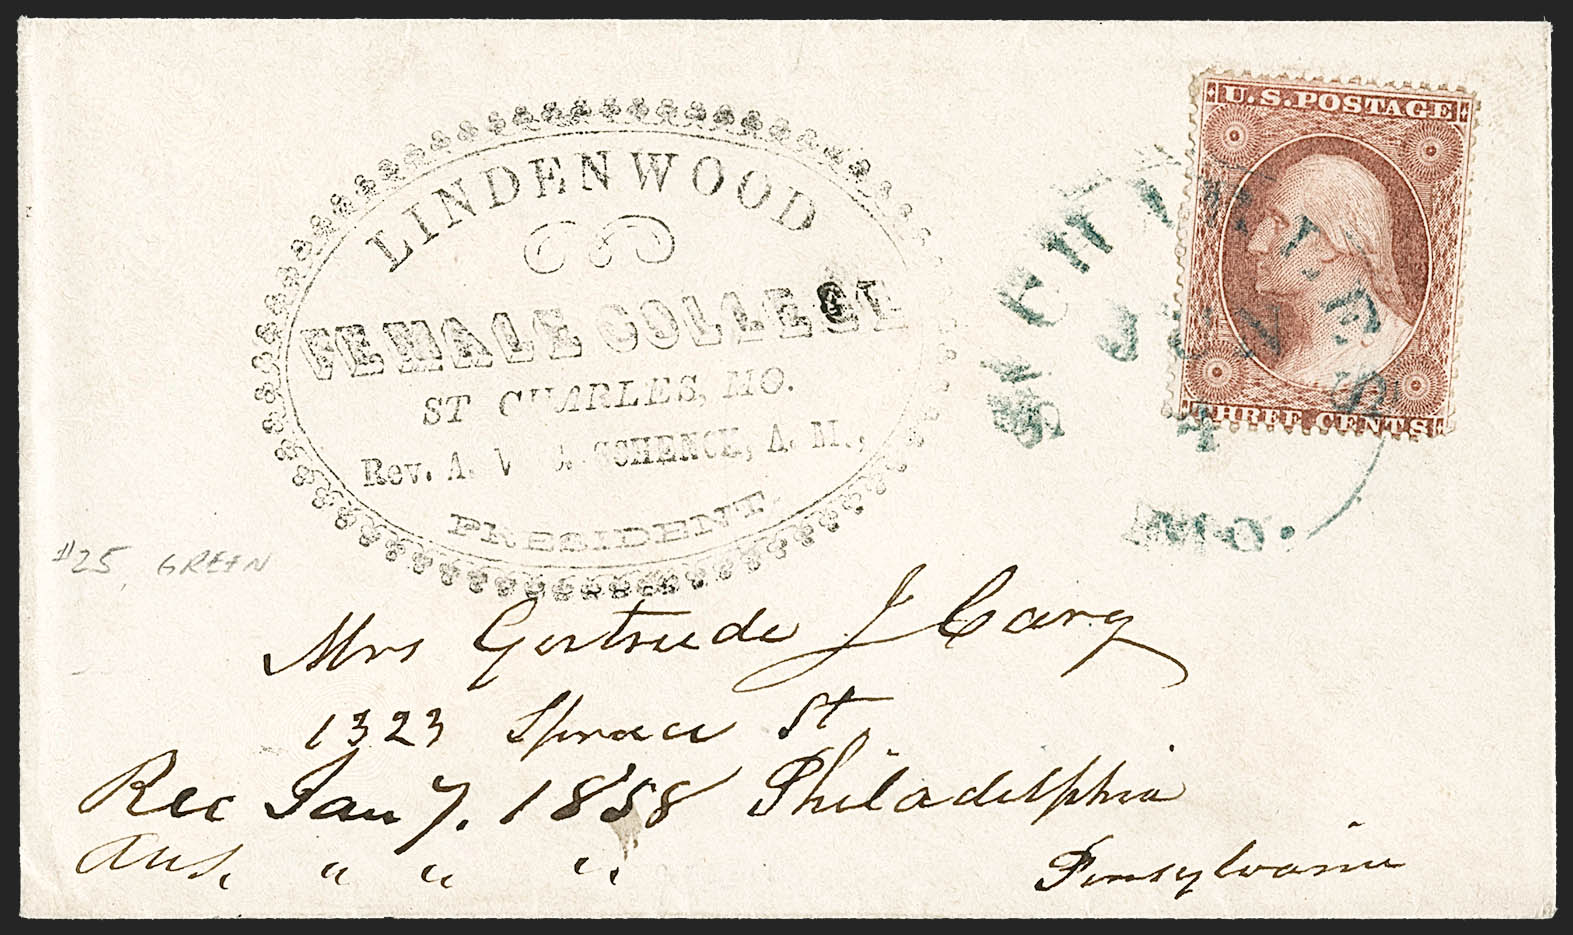 LINDENWOOD
FEMALE COLLEGE
ST CHARLES, MO.
Rev. A. V. C. SCHENCK, A. M.,
PRESIDENT.
U.S. POSTAGE
THREE CENTS
ST CHARLES
JAN
4
MO.
#25, GREEN
Mrs Gertrude J Cary
1323 Spruce St
Philadelphia
Pennsylvania
Rec Jan 7. 1858
Ans. " " "